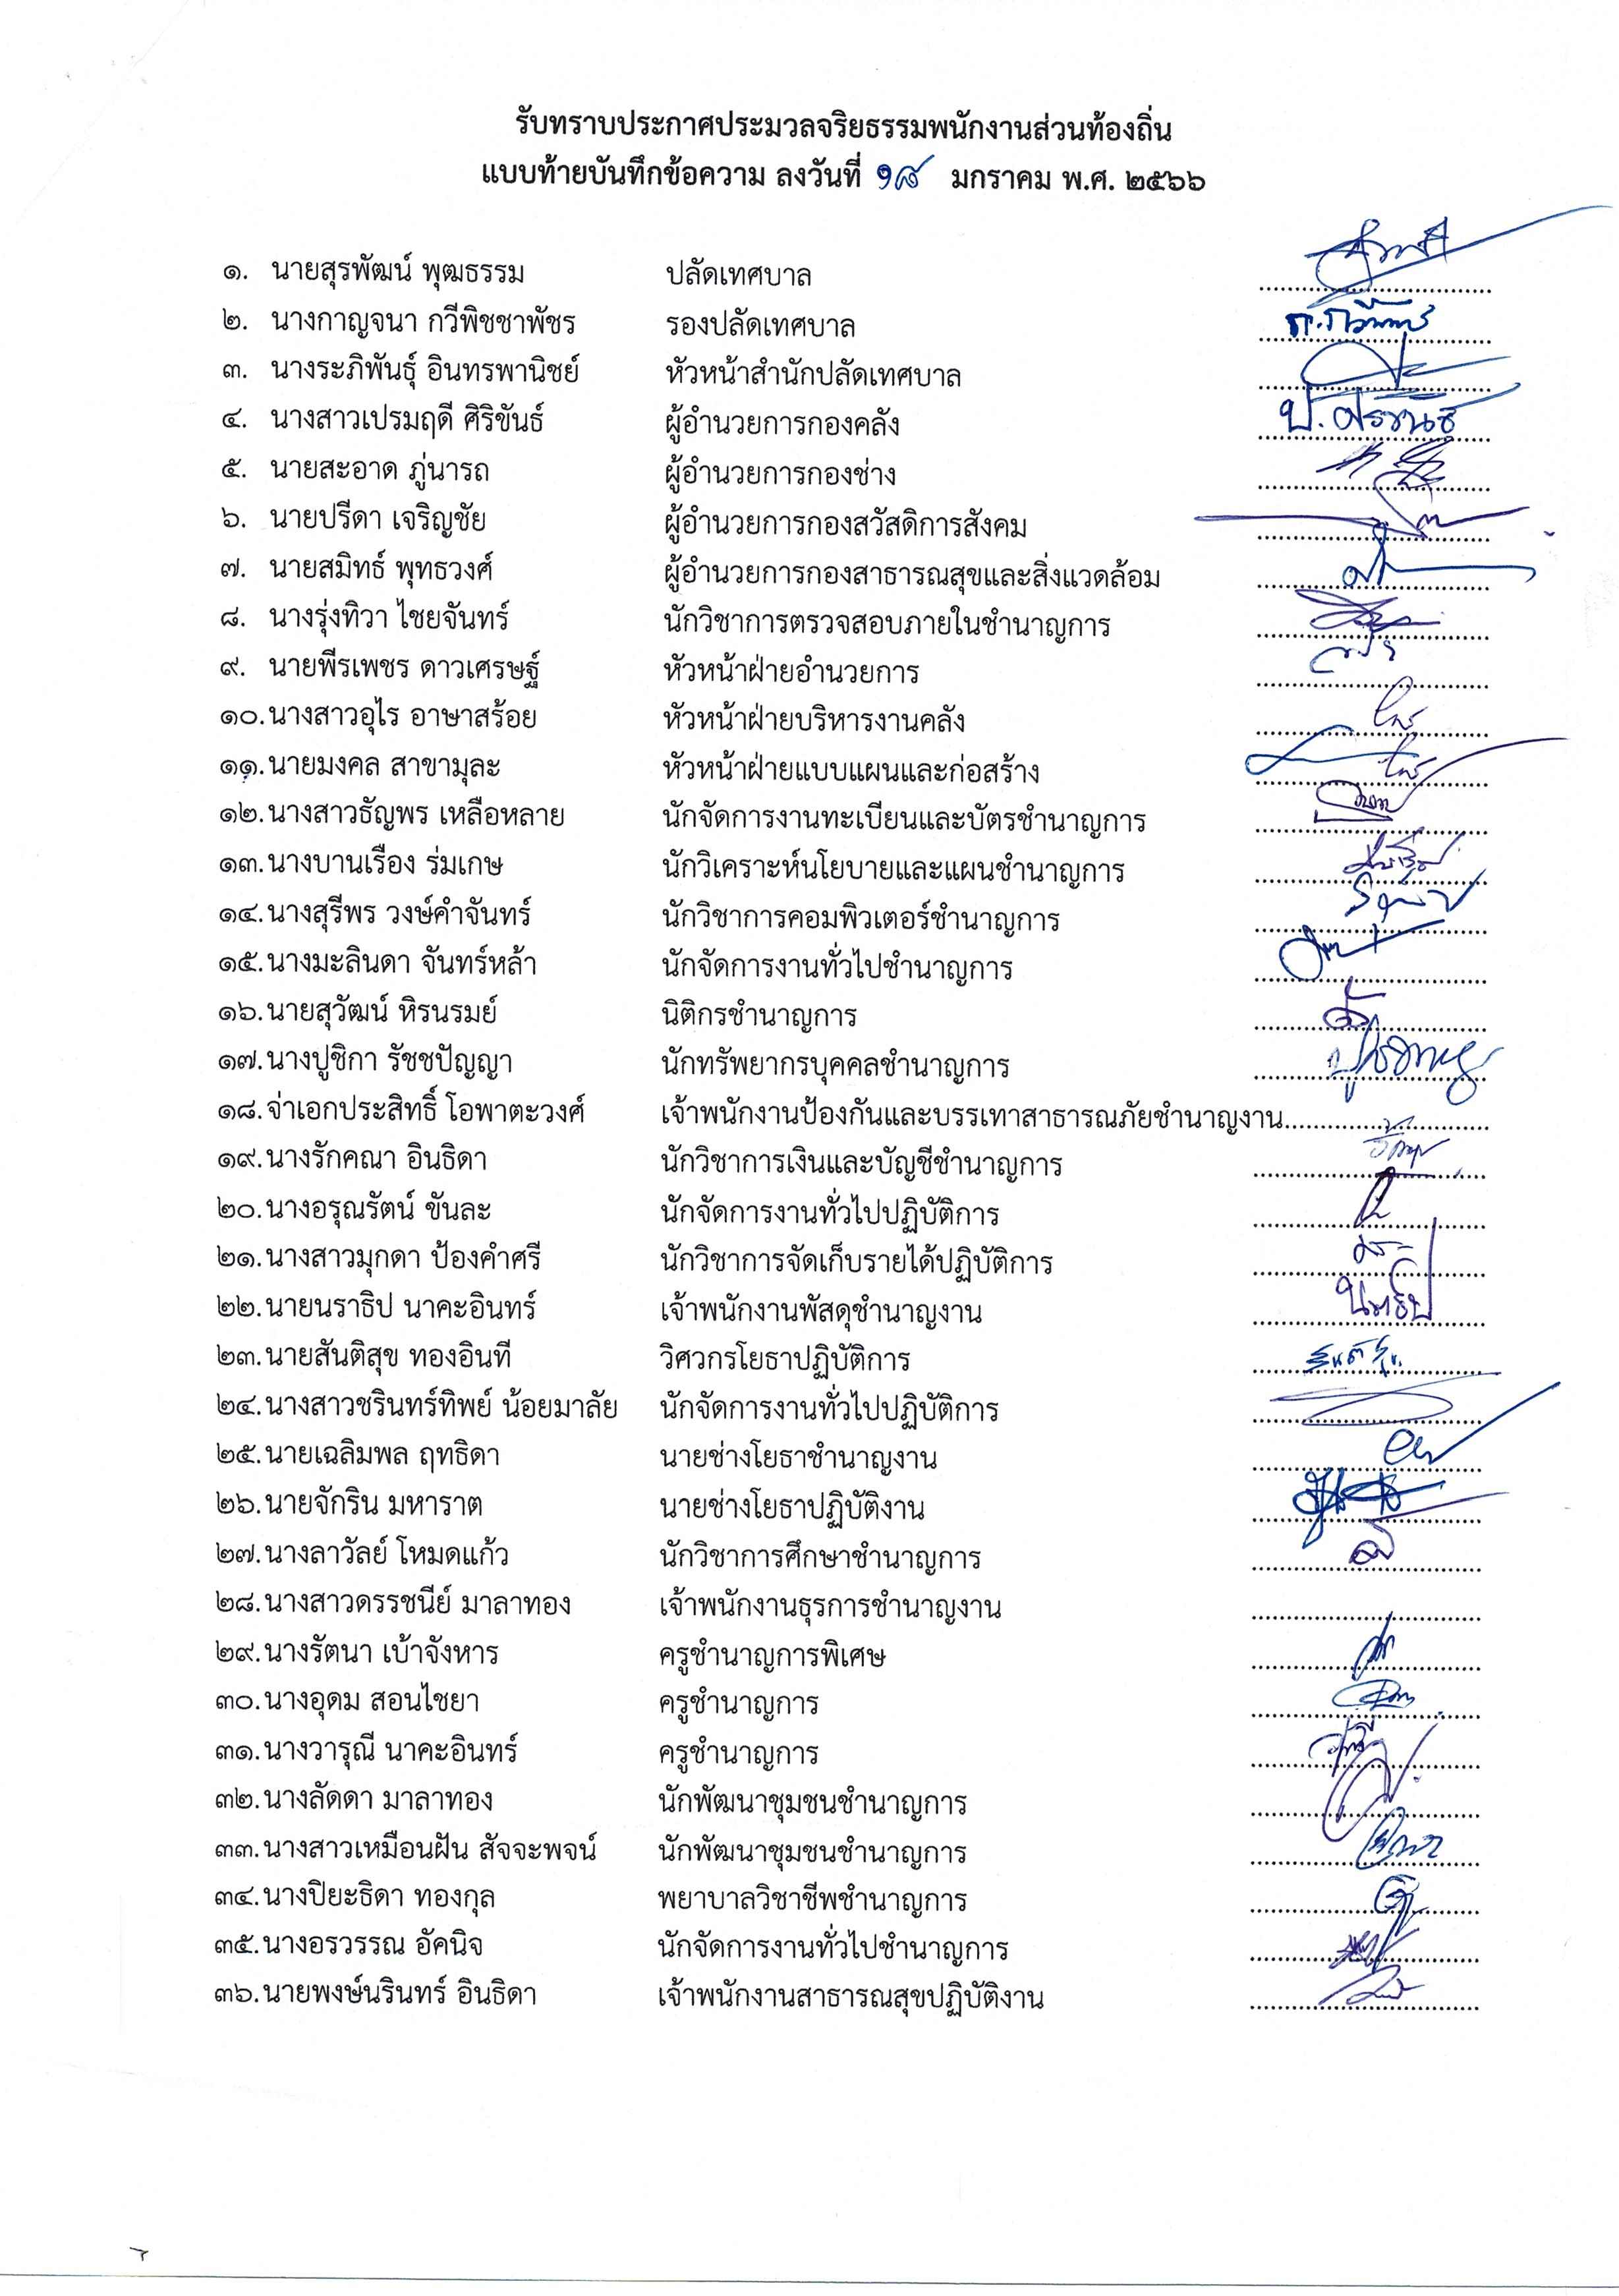 รับทราบประกาศประมวลจริยธรรมพนักงานส่วนท้องถิ่น
แบบท้ายบันทึกข้อความ ลงวันที่ ๑๘ มกราคม พ.ศ. ๒๕๖๖
๑. นายสุรพัฒน์ พุฒธรรม ปลัดเทศบาล
๒. นางกาญจนา กวีพิชชาพัชร รองปลัดเทศบาล
๓. นางระภิพันธุ์ อินทรพานิชย์ หัวหน้าสำนักปลัดเทศบาล
๔. นางสาวเปรมฤดี ศิริขันธ์ ผู้อำนวยการกองคลัง
๕. นายสะอาด ภู่นารถ ผู้อำนวยการกองช่าง
๖. นายปรีดา เจริญชัย ผู้อำนวยการกองสวัสดิการสังคม
๗. นายสมิทธ์ พุทธวงศ์ ผู้อำนวยการกองสาธารณสุขและสิ่งแวดล้อม
๘. นางรุ่งทิวา ไชยจันทร์ นักวิชาการตรวจสอบภายในชำนาญการ
๙. นายพีรเพชร ดาวเศรษฐ์ หัวหน้าฝ่ายอำนวยการ
๑๐. นางสาวอุไร อาษาสร้อย หัวหน้าฝ่ายบริหารงานคลัง
๑๑. นายมงคล สาขามุละ หัวหน้าฝ่ายแบบแผนและก่อสร้าง
๑๒. นางสาวธัญพร เหลือหลาย นักจัดการงานทะเบียนและบัตรชำนาญการ
๑๓. นางบานเรือง ร่มเกษ นักวิเคราะห์นโยบายและแผนชำนาญการ
๑๔. นางสุรีพร วงษ์คำจันทร์ นักวิชาการคอมพิวเตอร์ชำนาญการ
๑๕. นางมะลินดา จันทร์หล้า นักจัดการงานทั่วไปชำนาญการ
๑๖. นายสุวัฒน์ หิรนรมย์ นิติกรชำนาญการ
๑๗. นางปูชิกา รัชชปัญญา นักทรัพยากรบุคคลชำนาญการ
๑๘. จ่าเอกประสิทธิ์ โอพาตะวงศ์ เจ้าพนักงานป้องกันและบรรเทาสาธารณภัยชำนาญงาน
๑๙. นางรักคณา อินธิดา นักวิชาการเงินและบัญชีชำนาญการ
๒๐. นางอรุณรัตน์ ขันละ นักจัดการงานทั่วไปปฏิบัติการ
๒๑. นางสาวมุกดา ป้องคำศรี นักวิชาการจัดเก็บรายได้ปฏิบัติการ
๒๒. นายนราธิป นาคะอินทร์ เจ้าพนักงานพัสดุชำนาญงาน
๒๓. นายสันติสุข ทองอินที วิศวกรโยธาปฏิบัติการ
๒๔. นางสาวชรินทร์ทิพย์ น้อยมาลัย นักจัดการงานทั่วไปปฏิบัติการ
๒๕. นายเฉลิมพล ฤทธิดา นายช่างโยธาชำนาญงาน
๒๖. นายจักริน มหาราต นายช่างโยธาปฏิบัติงาน
๒๗. นางลาวัลย์ โหมดแก้ว นักวิชาการศึกษาชำนาญการ
๒๘. นางสาวดรรชนีย์ มาลาทอง เจ้าพนักงานธุรการชำนาญงาน
๒๙. นางรัตนา เบ้าจังหาร ครูชำนาญการพิเศษ
๓๐. นางอุดม สอนไชยา ครูชำนาญการ
๓๑. นางวารุณี นาคะอินทร์ ครูชำนาญการ
๓๒. นางลัดดา มาลาทอง นักพัฒนาชุมชนชำนาญการ
๓๓. นางสาวเหมือนฝัน สัจจะพจน์ นักพัฒนาชุมชนชำนาญการ
๓๔. นางปิยะธิดา ทองกุล พยาบาลวิชาชีพชำนาญการ
๓๕. นางอรวรรณ อัคนิจ นักจัดการงานทั่วไปชำนาญการ
๓๖. นายพงษ์นรินทร์ อินธิดา เจ้าพนักงานสาธารณสุขปฏิบัติงาน